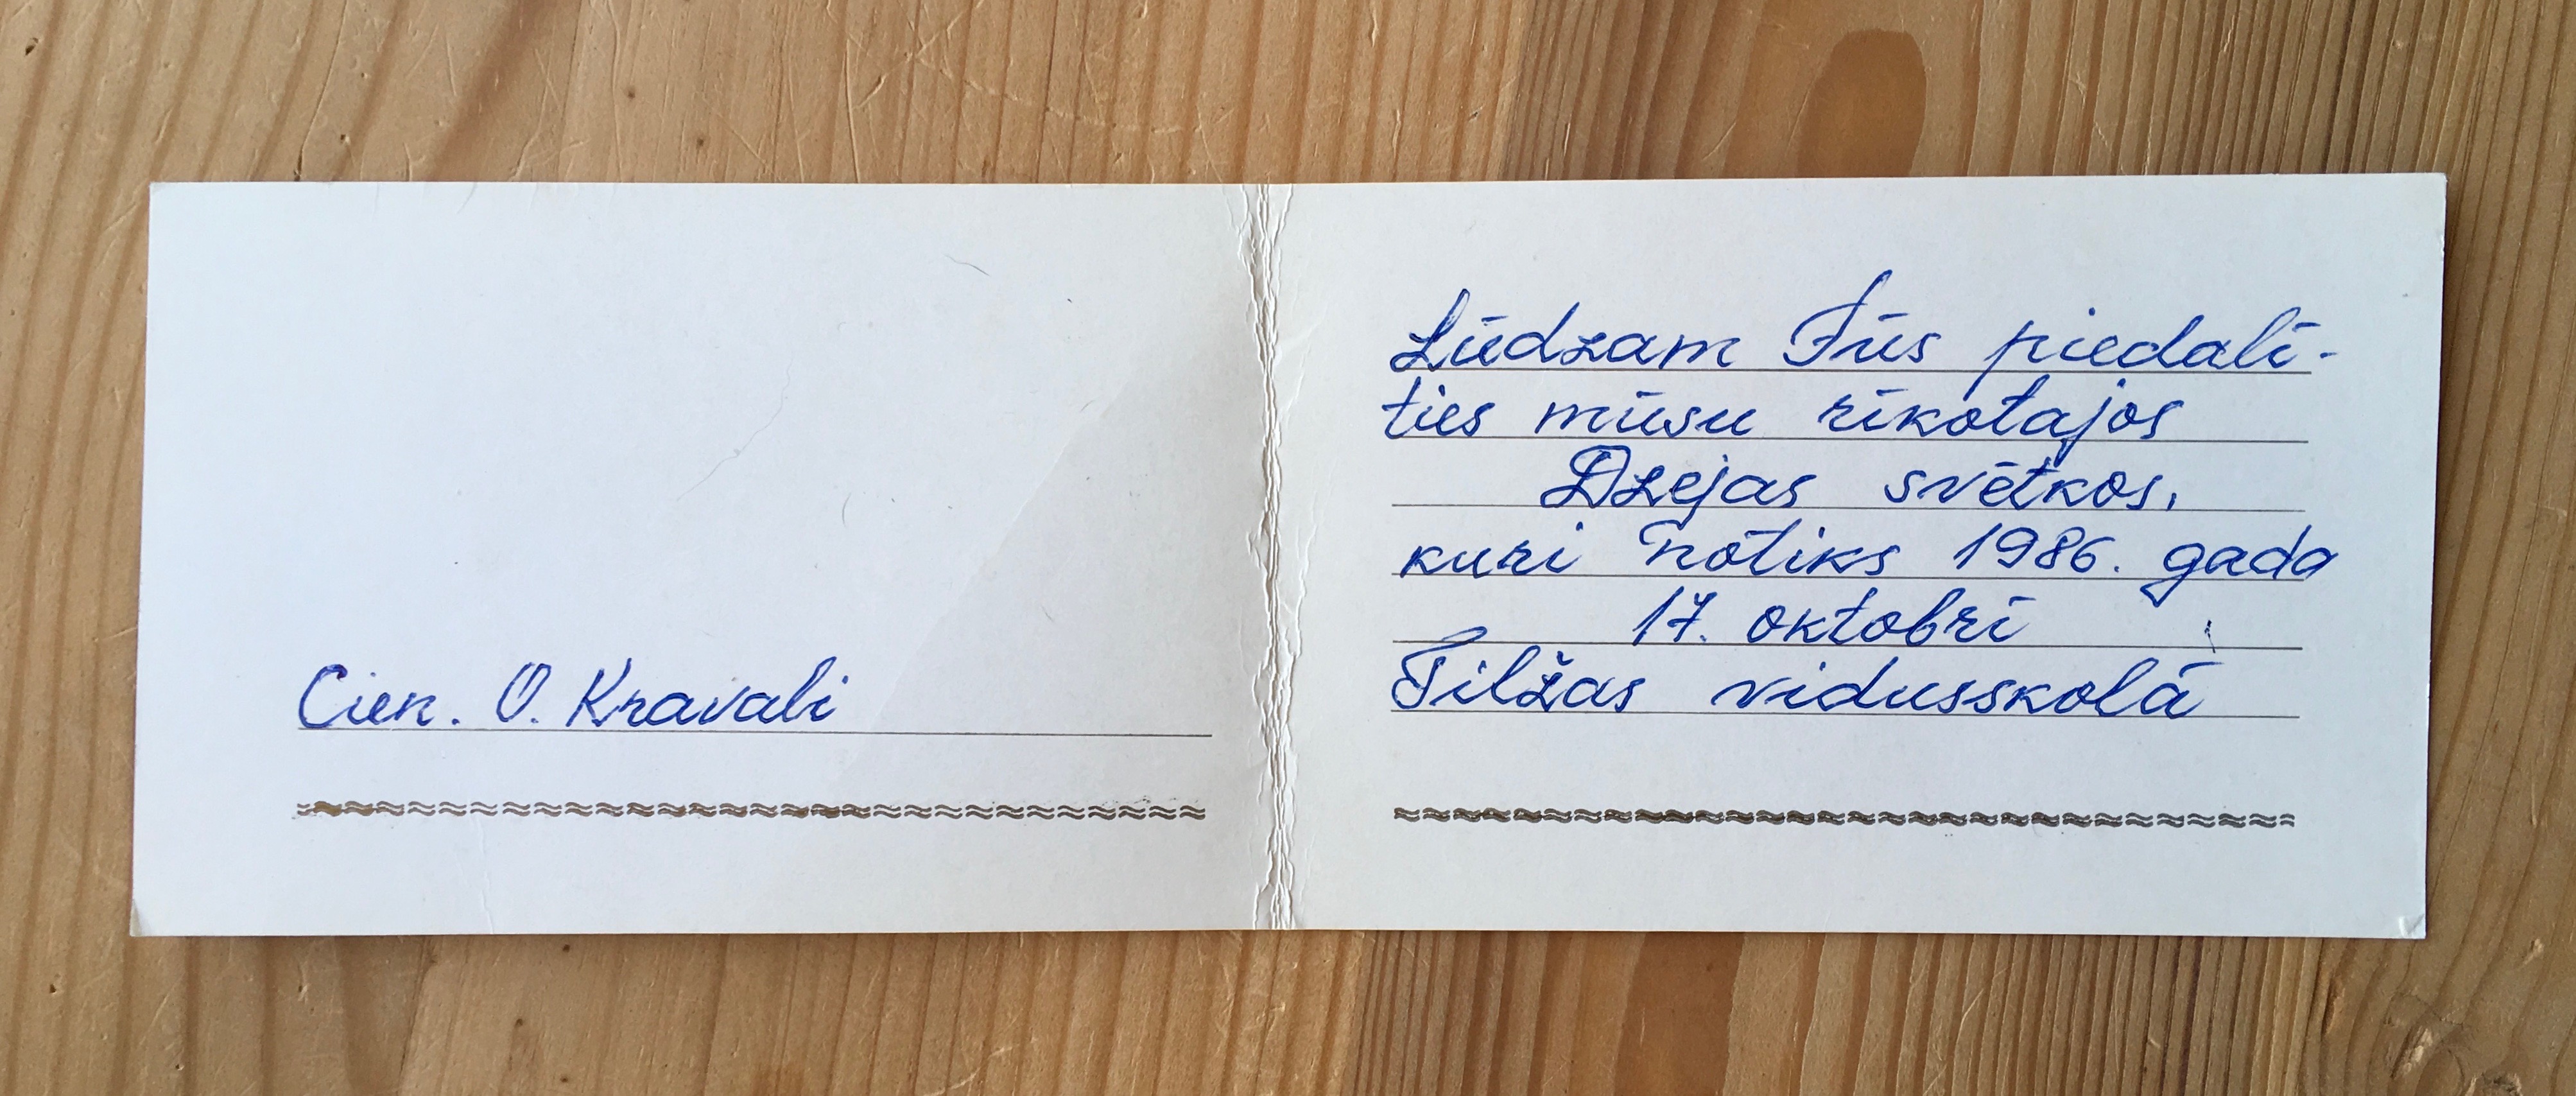 Cien. O. Kravali
Lūdzam Jūs piedalī-
ties mūsu rīkotajos
Dzejas svētkos,
kuri notiks 1986. gada
17. oktobrī
Tilžas vidusskolā